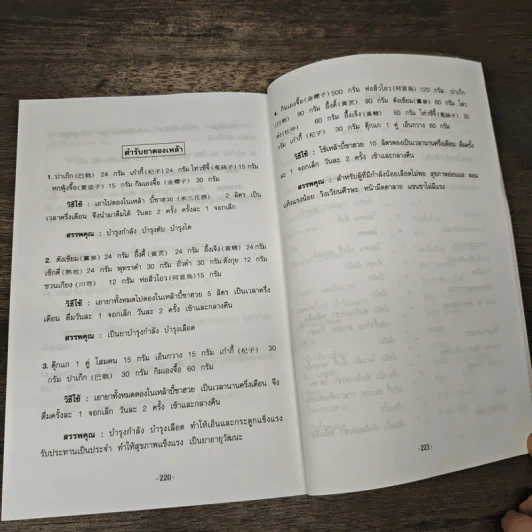 ตำรับยาดองเหล้า
1. ปาเก็ก (巴戟) 24 กรัม เก๋ากี้ (杞子) 24 กรัม โทวซีจี้ (菟絲子) 15 กรัม
หกผุ้งจื้อ (夏苗子) 15 กรัม กิมเองจื้อ (金櫻子) 30 กรัม
วิธีใช้ : เอาไปดองในเหล้า บี้ซาฮวย (米三花酒) 2 ลิตร เป็น
เวลาครึ่งเดือน จึงนำมาดื่มได้ วันละ 2 ครั้ง ครั้งละ 1 จอกเล็ก
สรรพคุณ : บำรุงกำลัง บำรุงตับ บำรุงไต
2. ตังเซียม (黨參) 24 กรัม อึ้งคี้ (黃芪) 24 กรัม อึ้งเจ็ง (黃精) 24 กรัม
เซ็กตี่ (熟地) 24 กรัม พุทราดำ 30 กรัม ถั่วดำ 30 กรัม ตังกุย 12 กรัม
ชวนเกียง (川芎) 12 กรัม ห่อสิ่วโอว (何首烏) 15 กรัม
วิธีใช้ : เอายาทั้งหมดไปดองในเหล้าบี้ซาฮวย 5 ลิตร เป็นเวลาครึ่ง
เดือน ดื่มวันละ 1 จอกเล็ก วันละ 2 ครั้ง เช้าและกลางคืน
สรรพคุณ : เป็นยาบำรุงกำลัง บำรุงเลือด
3. ตุ๊กแก 1 คู่ โสมคน 15 กรัม เอ็นกวาง 15 กรัม เก๋ากี้ (杞子) 30
กรัม ปาเก็ก (巴戟) 30 กรัม กิมเองจื้อ 60 กรัม
วิธีใช้ : เอายาทั้งหมดดองในเหล้าบี้ซาฮวย เป็นเวลานานครึ่งเดือน จึง
ดื่มครั้งละ 1 จอกเล็ก วันละ 2 ครั้ง เช้าและกลางคืน
สรรพคุณ : บำรุงกำลัง บำรุงเลือด ทำให้เอ็นและกระดูกแข็งแรง
รับประทานเป็นประจำ ทำให้สุขภาพแข็งแรง เป็นยาอายุวัฒนะ
- 220 -
4. กิมเองจื้อ (金櫻子) 500 กรัม ห่อสิ่วโอว (何首烏) 125 กรัม ปาเก็ก
(巴戟) 90 กรัม อึ้งคี้ (黃芪) 90 กรัม ตังเซียม (黨參) 60 กรัม โต่ว
(杜仲) 60 กรัม อึ้งเจ็ง (黃精) 60 กรัม โทวซีจี้ (菟絲子) 30
กรัม เก๋ากี้ (杞子) 30 กรัม ตุ๊กแก 1 คู่ เอ็นกวาง 60 กรัม
วิธีใช้ : ใช้เหล้าบี้ซาฮวย 10 ลิตรดองเป็นเวลานานครึ่งเดือน ดื่มครั้ง
ละ 1 จอกเล็ก วันละ 2 ครั้ง เช้าและกลางคืน
สรรพคุณ : สำหรับผู้ที่มีกำลังน้อยเลือดไม่พอ สุขภาพอ่อนแอ ผอม
แห้งแรงน้อย วิงเวียนศีรษะ หน้ามืดตาลาย แขนขาไม่มีแรง
- 221 -